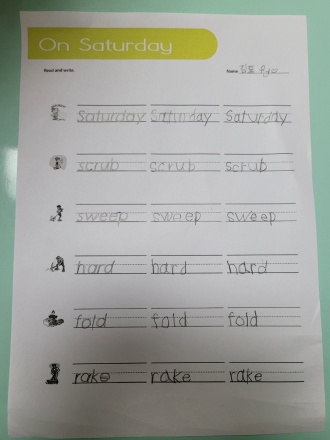 On Saturday
Read and write.
Name
Saturday Saturday Saturday
scrub scrub scrub
sweep sweep sweep
hard hard hard
fold fold fold
rake rake rake